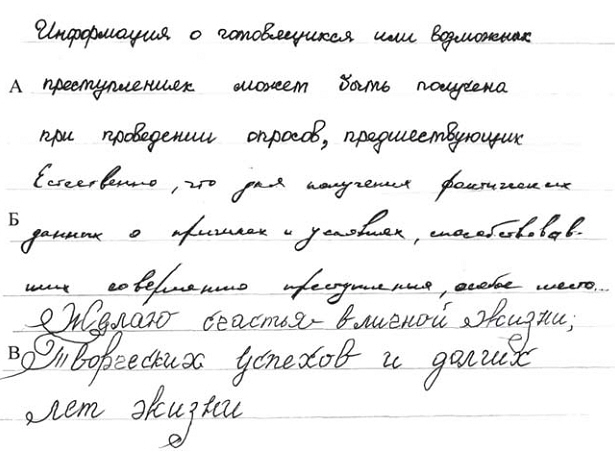 Информация о готовящихся или возможных
А преступлениях может быть получена
при проведении опросов, предшествующих
Естественно, что для получения фактических
Б данных о причинах и условиях, способствовав-
ших совершению преступления, особое место...
Желаю счастья в личной жизни;
В Творческих успехов и долгих
лет жизни